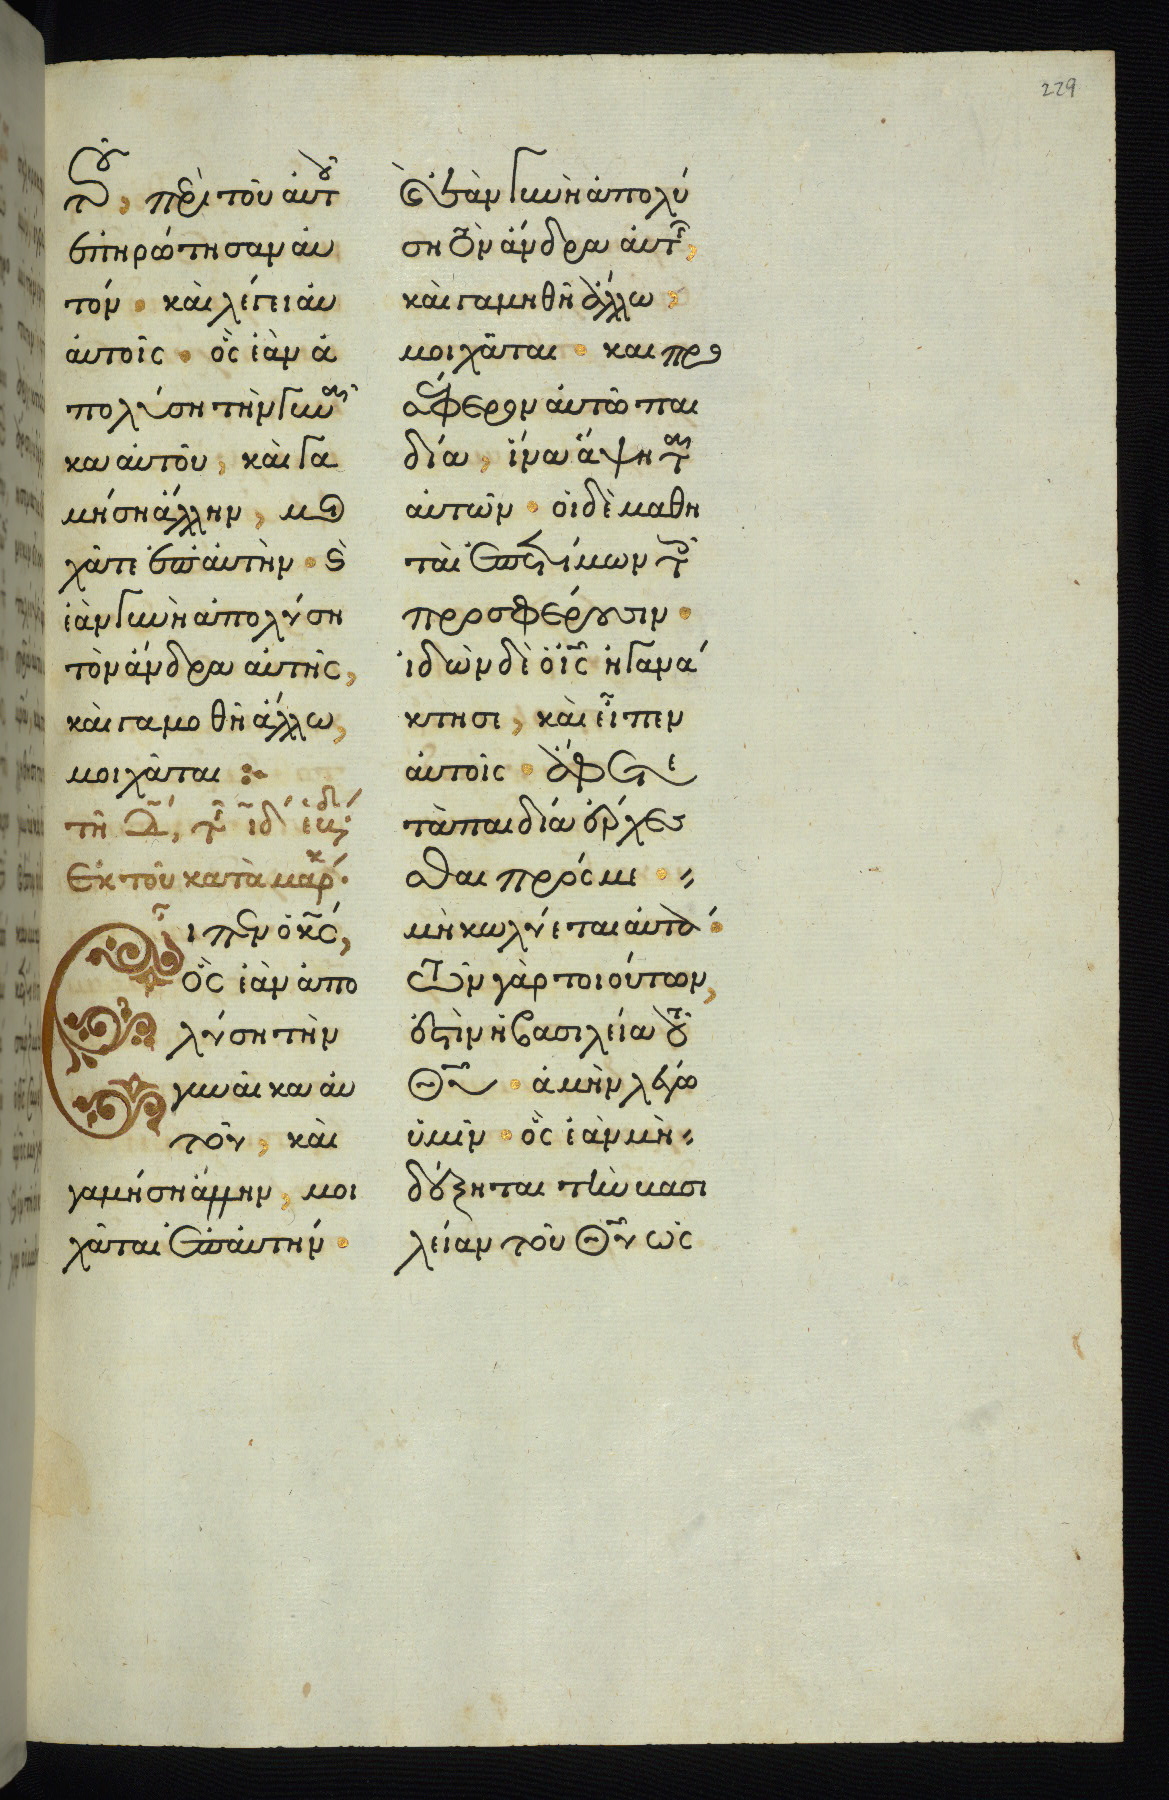 229
τοῦ, περὶ τοῦ αὐτοῦ
ἐπηρώτησαν αὐ
τόν. καὶ λέγει αυ
αυτοῖς. ὃς ἐὰν ἀ
πολύση τὴν γυναῖ
κα αὐτοῦ, καὶ γα
μήση ἄλλην, μοι
χᾶτε ἐπ' αὐτὴν. καὶ
ἐὰν γυνὴ ἀπολύση
τὸν ἄνδρα αὐτῆς,
καὶ γαμοθῆ ἄλλω,
μοιχᾶται:
τῆ
ἐκ τοῦ κατὰ μάρκ.
Εἶπεν ὁ κς,
ὃς ἐὰν ἀπο
λύση τὴν
γυναικα αὐ
τοῦ, καὶ
γαμήση ἄλλην, μοι
χᾶται ἐπ' αὐτήν.
Ἐὰν γυνὴ ἀπολύ
ση τὸν ἄνδρα αὐτῆς,
καὶ γαμηθῆ ἄλλω,
μοιχᾶται. και προ
σέφερον αὐτῶ παι
δία, ἵνα ἅψηται
αυτῶν. οἱ δὲ μαθη
ταὶ ἐπετίμων τοῖς
προσφέρουσιν.
ἰδὼν δὲ ὁ ις ἠγανά
κτησε, καὶ εἶπεν
αὐτοῖς. ἄφετε
τὰ παιδία ἔρχεσ
σθαι πρός με.
μὴ κωλύεται αὐτά.
τῶν γὰρ τοιούτων,
ἐστὶν ἡ βασιλεία τοῦ
θυ. ἀμὴν λέγω
ὑμῖν. ὃς ἐὰν μὴ
δέξηται τὴν βασι
λείαν τοῦ θυ ὡς